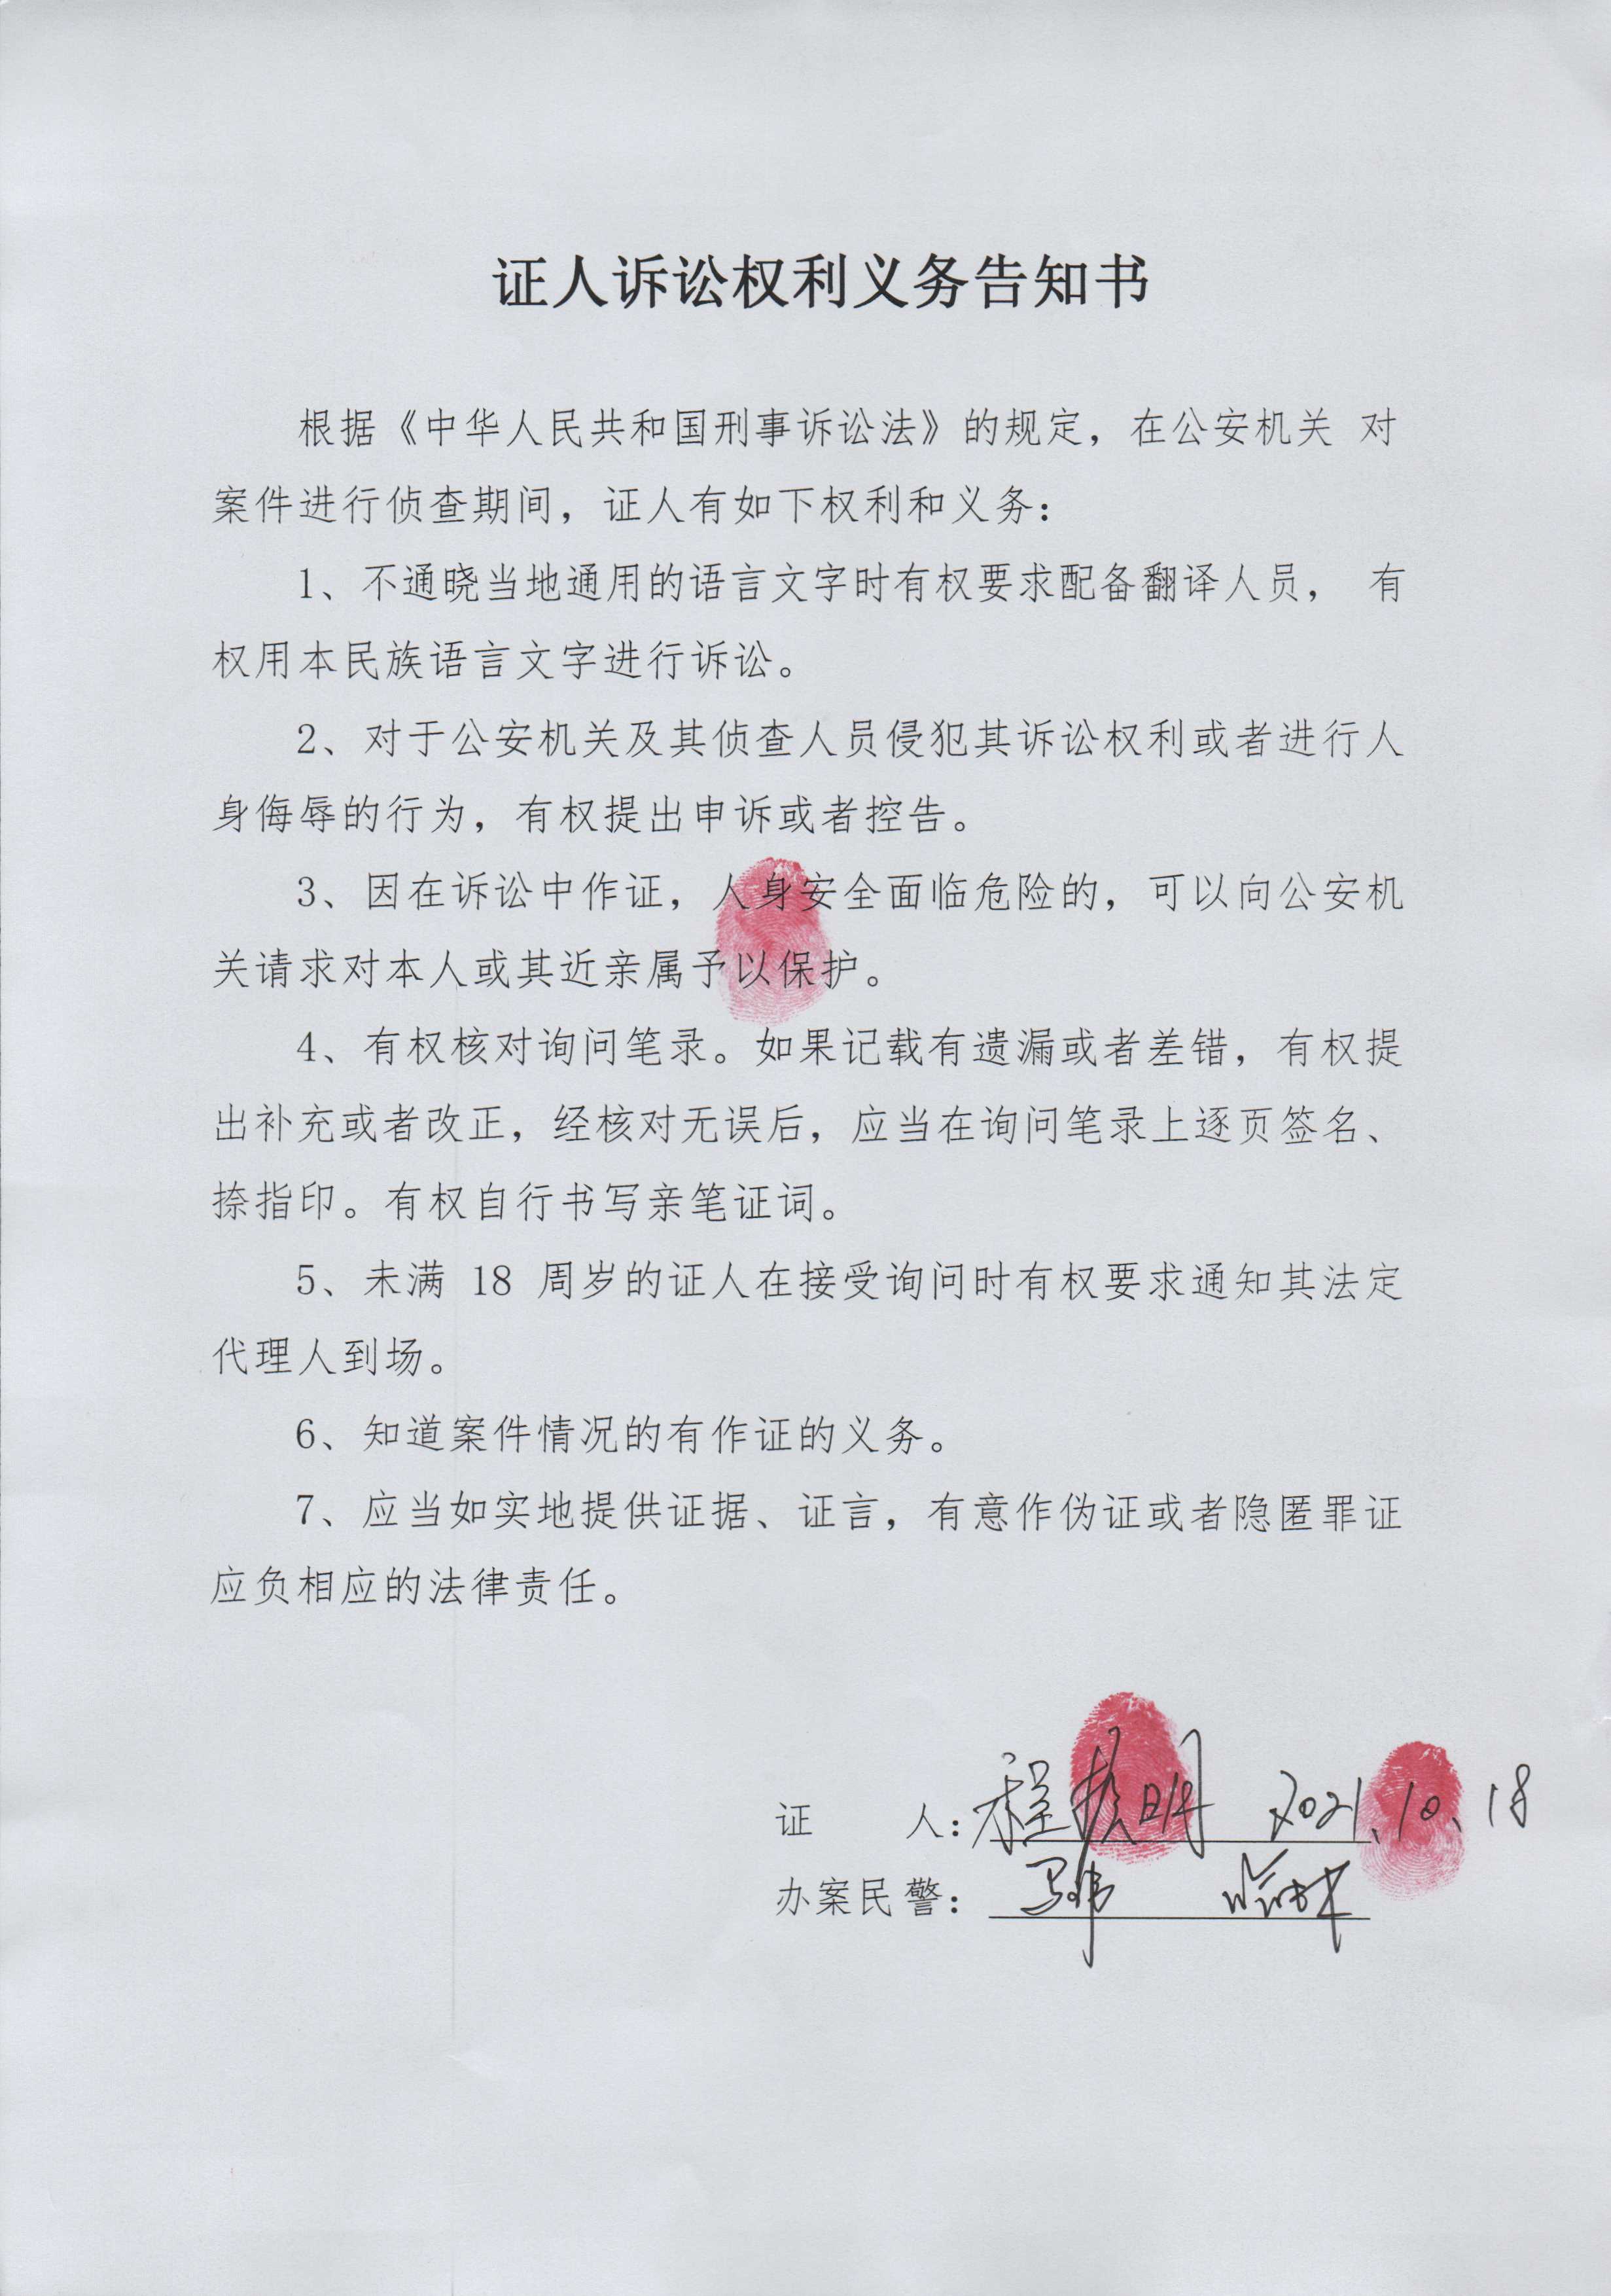 证人诉讼权利义务告知书
根据《中华人民共和国刑事诉讼法》的规定，在公安机关 对
案件进行侦查期间，证人有如下权利和义务：
1、不通晓当地通用的语言文字时有权要求配备翻译人员， 有
权用本民族语言文字进行诉讼。
2、对于公安机关及其侦查人员侵犯其诉讼权利或者进行人
身侮辱的行为，有权提出申诉或者控告。
3、因在诉讼中作证，人身安全面临危险的，可以向公安机
关请求对本人或其近亲属予以保护。
4、有权核对询问笔录。如果记载有遗漏或者差错，有权提
出补充或者改正，经核对无误后，应当在询问笔录上逐页签名、
捺指印。有权自行书写亲笔证词。
5、未满 18 周岁的证人在接受询问时有权要求通知其法定
代理人到场。
6、知道案件情况的有作证的义务。
7、应当如实地提供证据、证言，有意作伪证或者隐匿罪证
应负相应的法律责任。
证 人：程 明 2021.10.18
办案民警：马伟